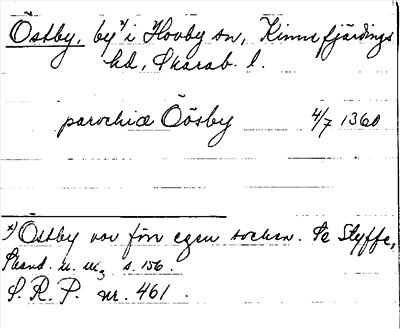 Östby, by x) i Hovby sn, Kinne fjärdings
hd, Skarab. l.
parochia Öösby 4/7 1360
x) Östby var förr egen socken. Se Styffe,
Skand. u. u., s. 156.
S. R. P. nr. 461.